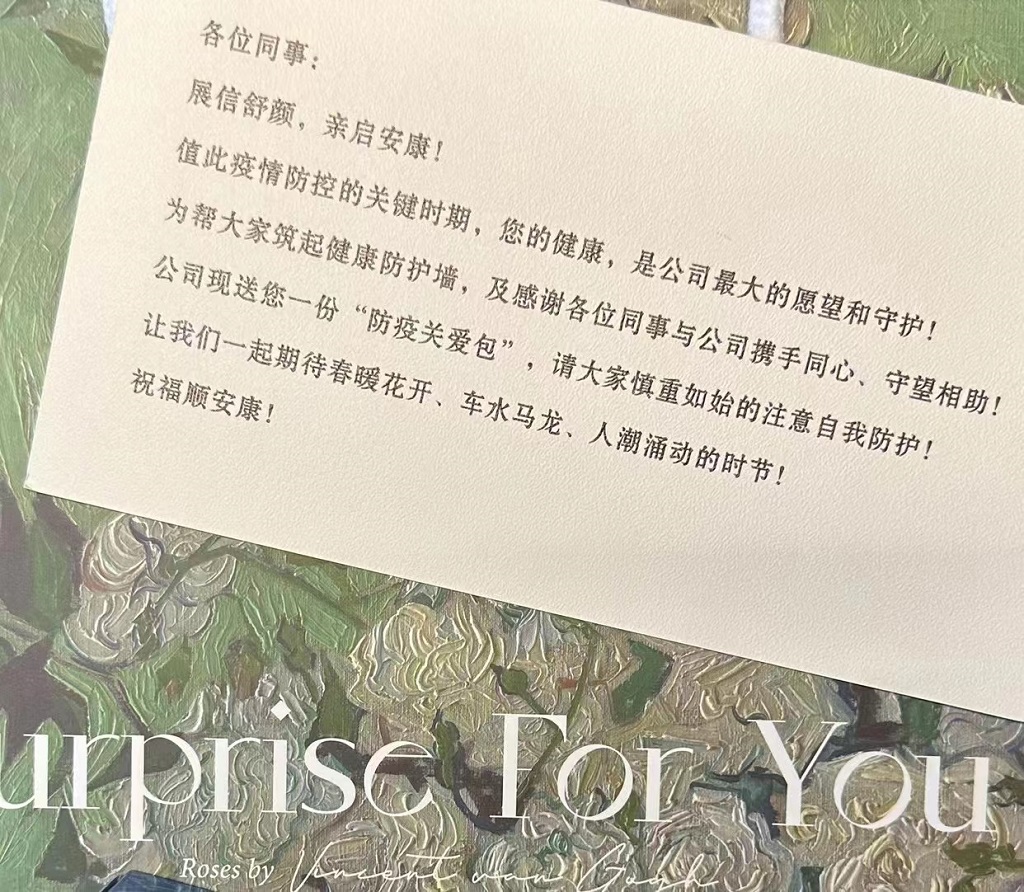 各位同事：
展信舒颜，亲启安康！
值此疫情防控的关键时期，您的健康，是公司最大的愿望和守护！
为帮大家筑起健康防护墙，及感谢各位同事与公司携手同心、守望相助！
公司现送您一份“防疫关爱包”，请大家慎重如始的注意自我防护！
让我们一起期待春暖花开、车水马龙、人潮涌动的时节！
祝福顺安康！
urprise For You
Roses by Vincent van Gogh